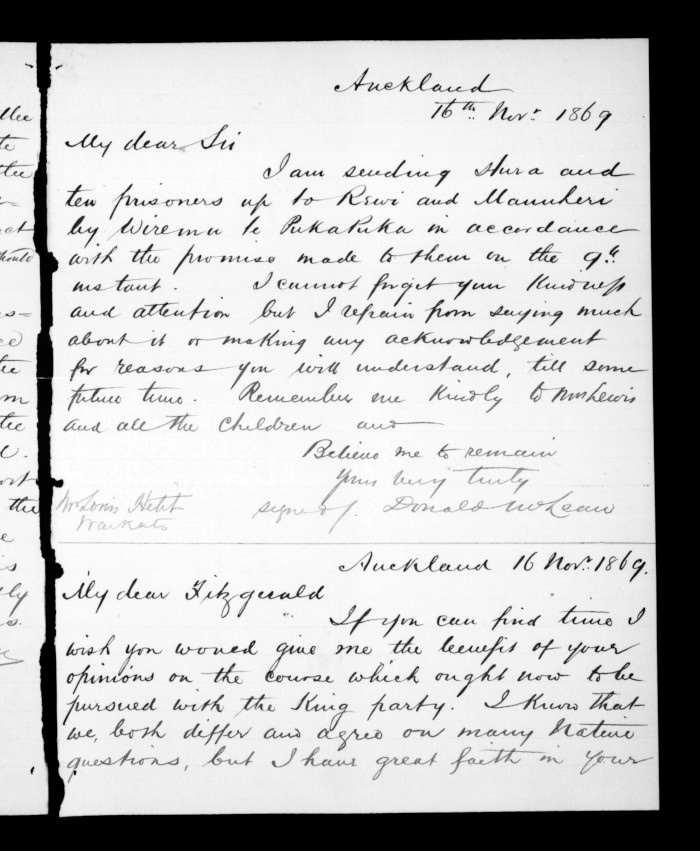 the
te
the
ct
should
s=
ce
the
m
the
d.
ort
the
e
is
tly
s.
Auckland
16th Novr 1869
My dear Sir
I am sending Hura and
ten prisoners up to Rewi and Manuheri
by Wiremu te PukaPuka in accordance
with the promise made to them on the 9th
instant. I cannot forget your Kindness
and attention but I refrain from saying much
about it or making any acknowledgement
for reasons you will understand, till some
future time. Remember me Kindly to Mrs Lewis
and all the children and
Believe me to remain
Yours very truly
Mr Louis Hetit signed/. Donald McLean
Waikato
Auckland 16 Novr. 1869.
My dear Fitzgerald
If you can find time I
wish you would give me the benefit of your
opinions on the course which ought now to be
pursued with the King party. I know that
we, both differ and agree on many Native
questions, but I have great faith in your